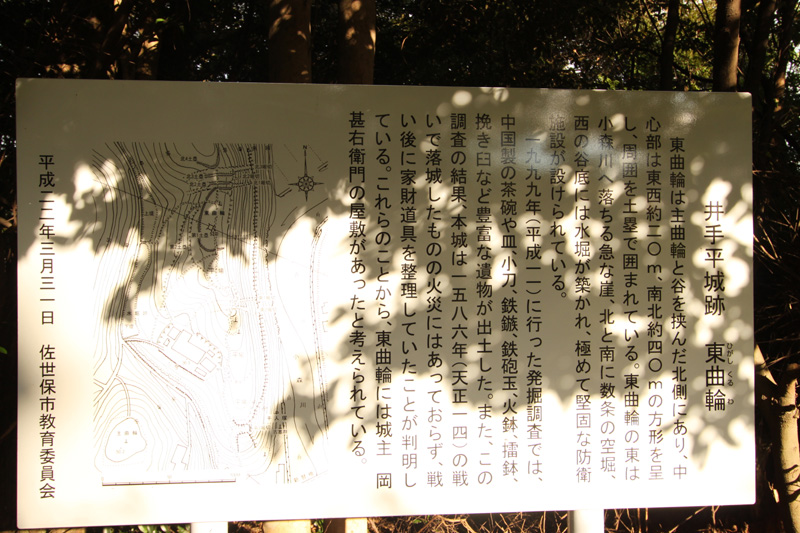 井手平城跡　東曲輪
ひがし くる わ
東曲輪は主曲輪と谷を挟んだ北側にあり、中
心部は東西約二〇ｍ、南北約四〇ｍの方形を呈
し、周囲を土塁で囲まれている。東曲輪の東は
小森川へ落ちる急な崖、北と南に数条の空堀、
西の谷底には水堀が築かれ、極めて堅固な防衛
施設が設けられている。
一九九九年（平成一一）に行った発掘調査では、
中国製の茶碗や皿、小刀、鉄鏃、鉄砲玉、火鉢、擂鉢、
挽き臼など豊富な遺物が出土した。また、この
調査の結果、本城は一五八六年（天正一四）の戦
いで落城したものの火災にはあっておらず、戦
い後に家財道具を整理していたことが判明し
ている。これらのことから、東曲輪には城主　岡
甚右衛門の屋敷があったと考えられている。
東曲輪
主曲輪
平成二二年三月三一日　佐世保市教育委員会